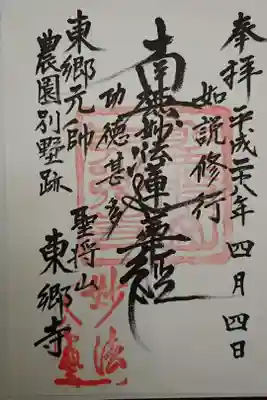 奉拝 平成二十八年四月四日
如説修行
南無妙法蓮華経
功徳甚多
東郷元帥
農園別墅跡
聖将山 東郷寺
妙法